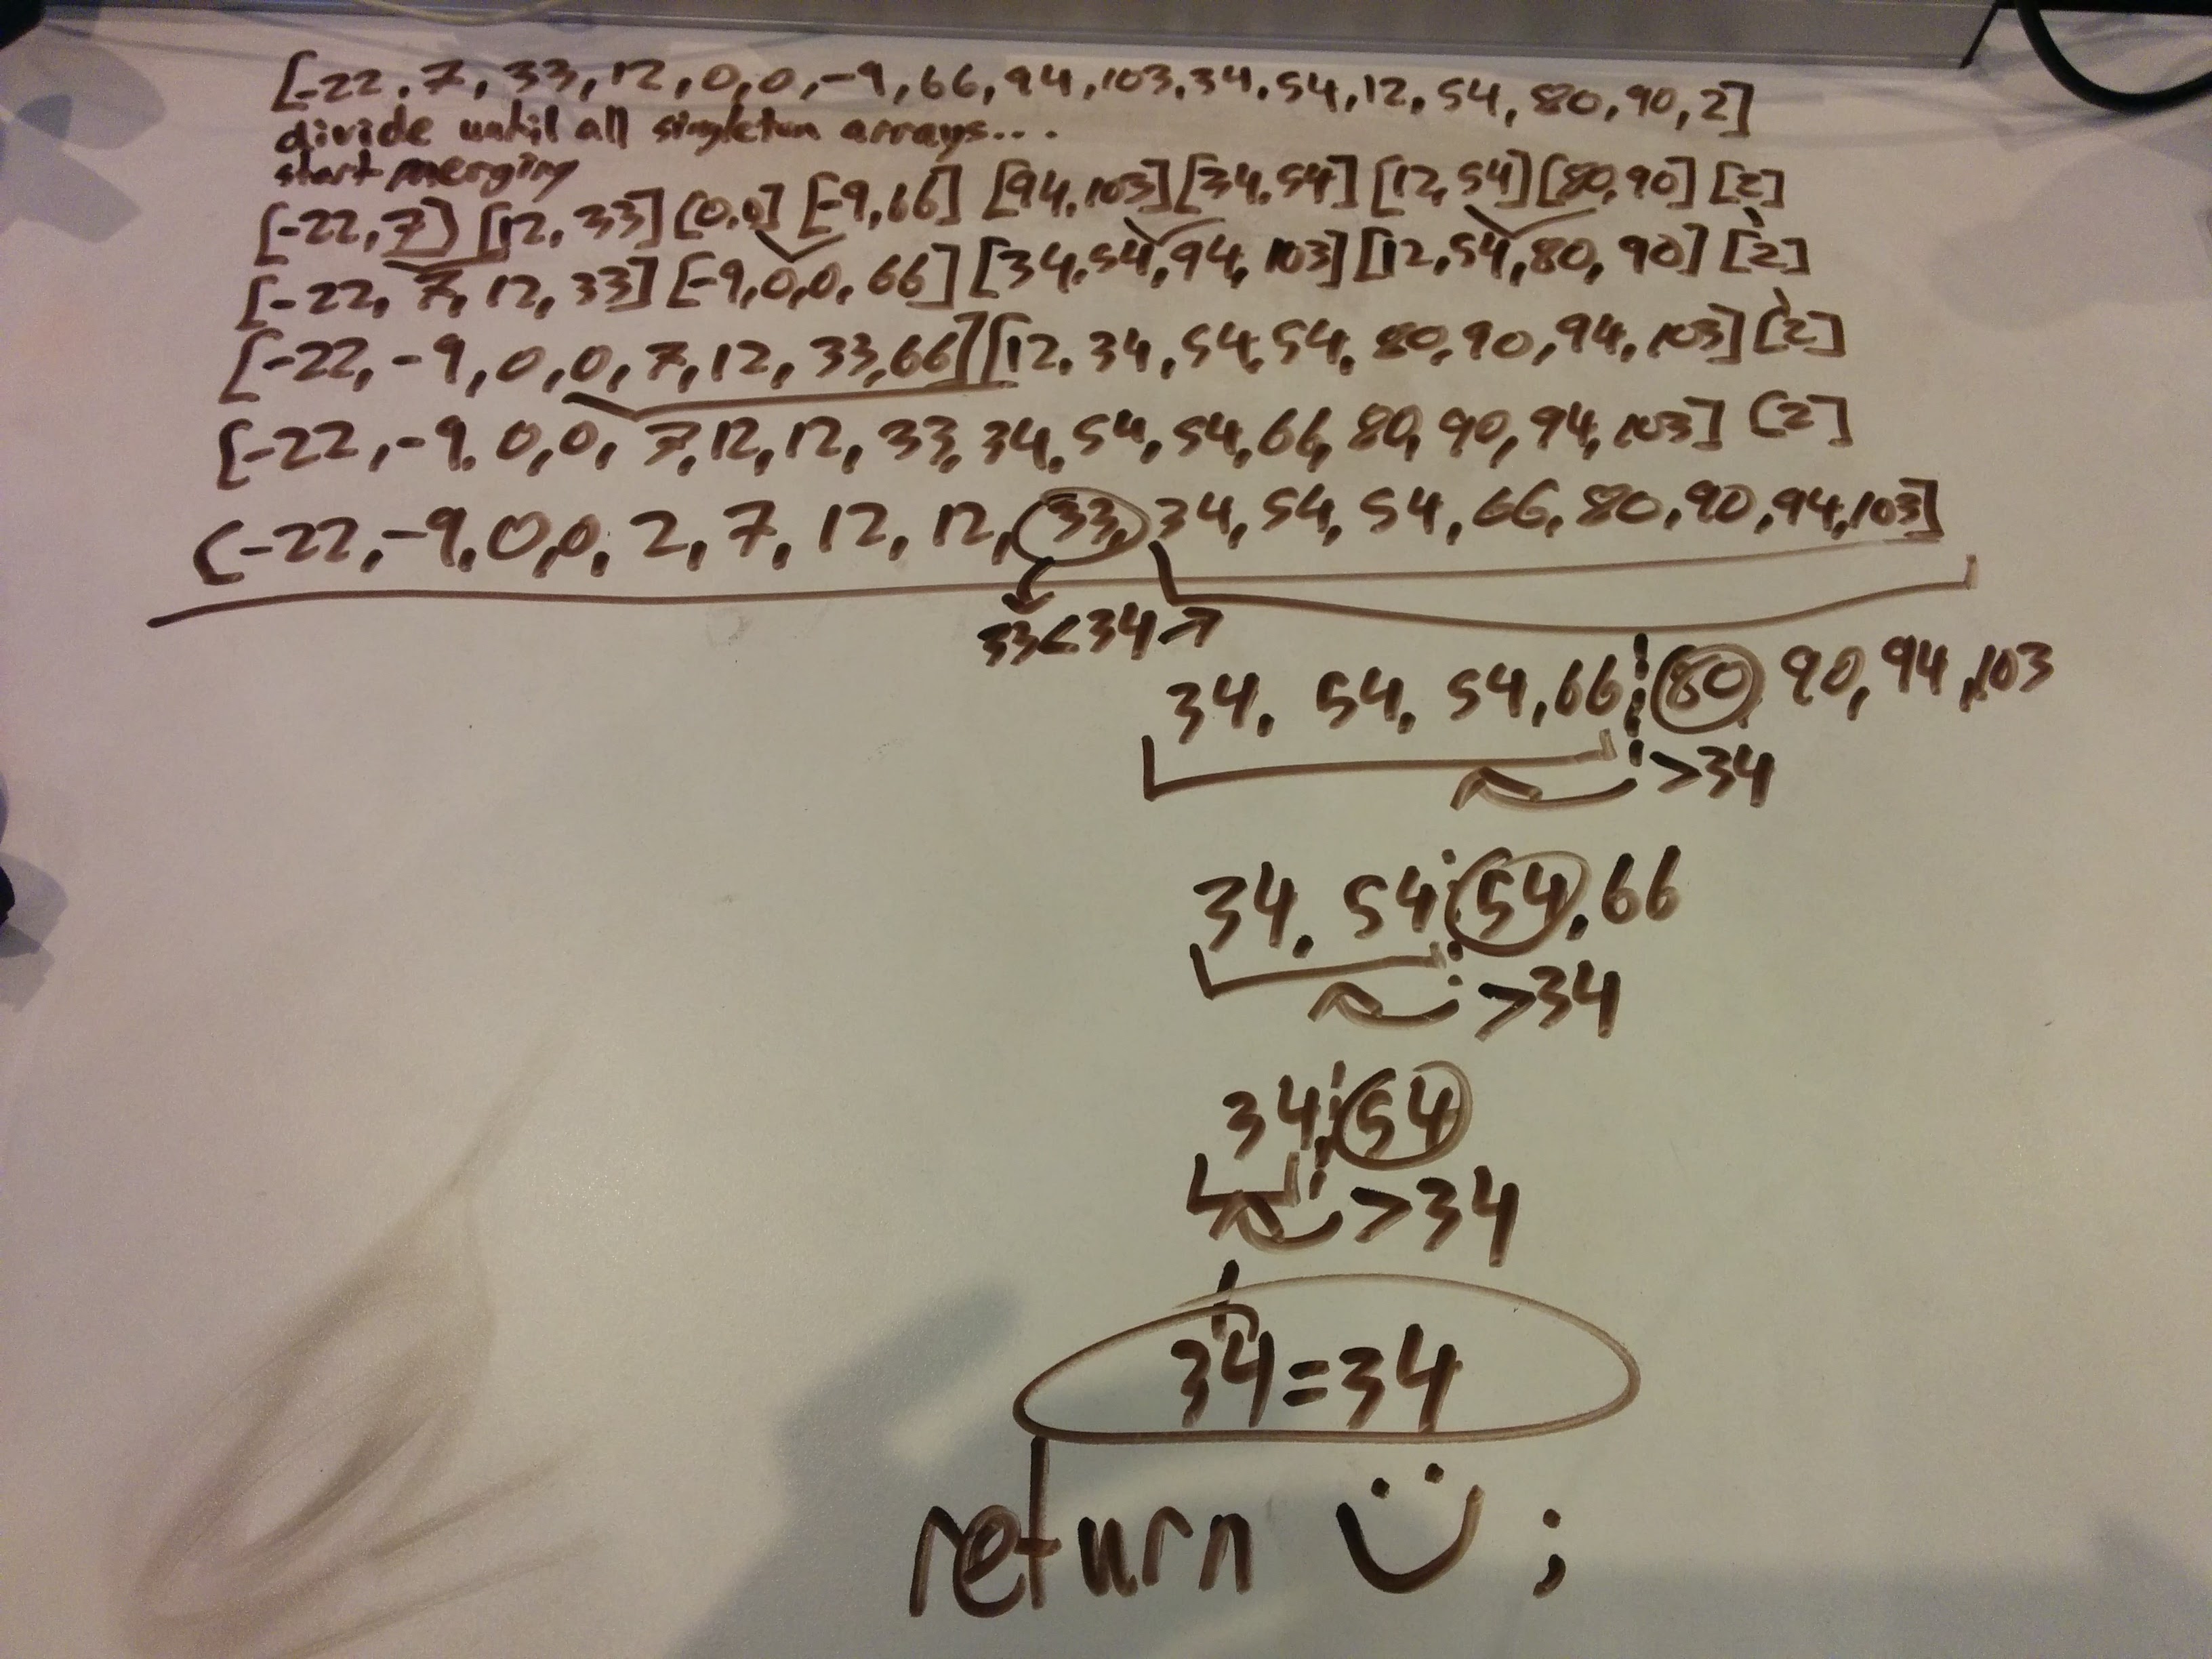 [-22, 7, 33, 12, 0, 0, -9, 66, 94, 103, 34, 54, 12, 54, 80, 90, 2]
divide until all singleton arrays...
start merging
[-22, 7] [12, 33] [0,0] [-9, 66] [94, 103] [34, 54] [12, 54] [80, 90] [2]
[-22, 7, 12, 33] [-9, 0, 0, 66] [34, 54, 94, 103] [12, 54, 80, 90] [2]
[-22, -9, 0, 0, 7, 12, 33, 66] [12, 34, 54, 54, 80, 90, 94, 103] [2]
[-22, -9, 0, 0, 7, 12, 12, 33, 34, 54, 54, 66, 80, 90, 94, 103] [2]
[-22, -9, 0, 0, 2, 7, 12, 12, 33, 34, 54, 54, 66, 80, 90, 94, 103]
33<34→
34, 54, 54, 66 80, 90, 94, 103
>34
34, 54 54, 66
>34
34, 54
>34
34=34
return :) ;